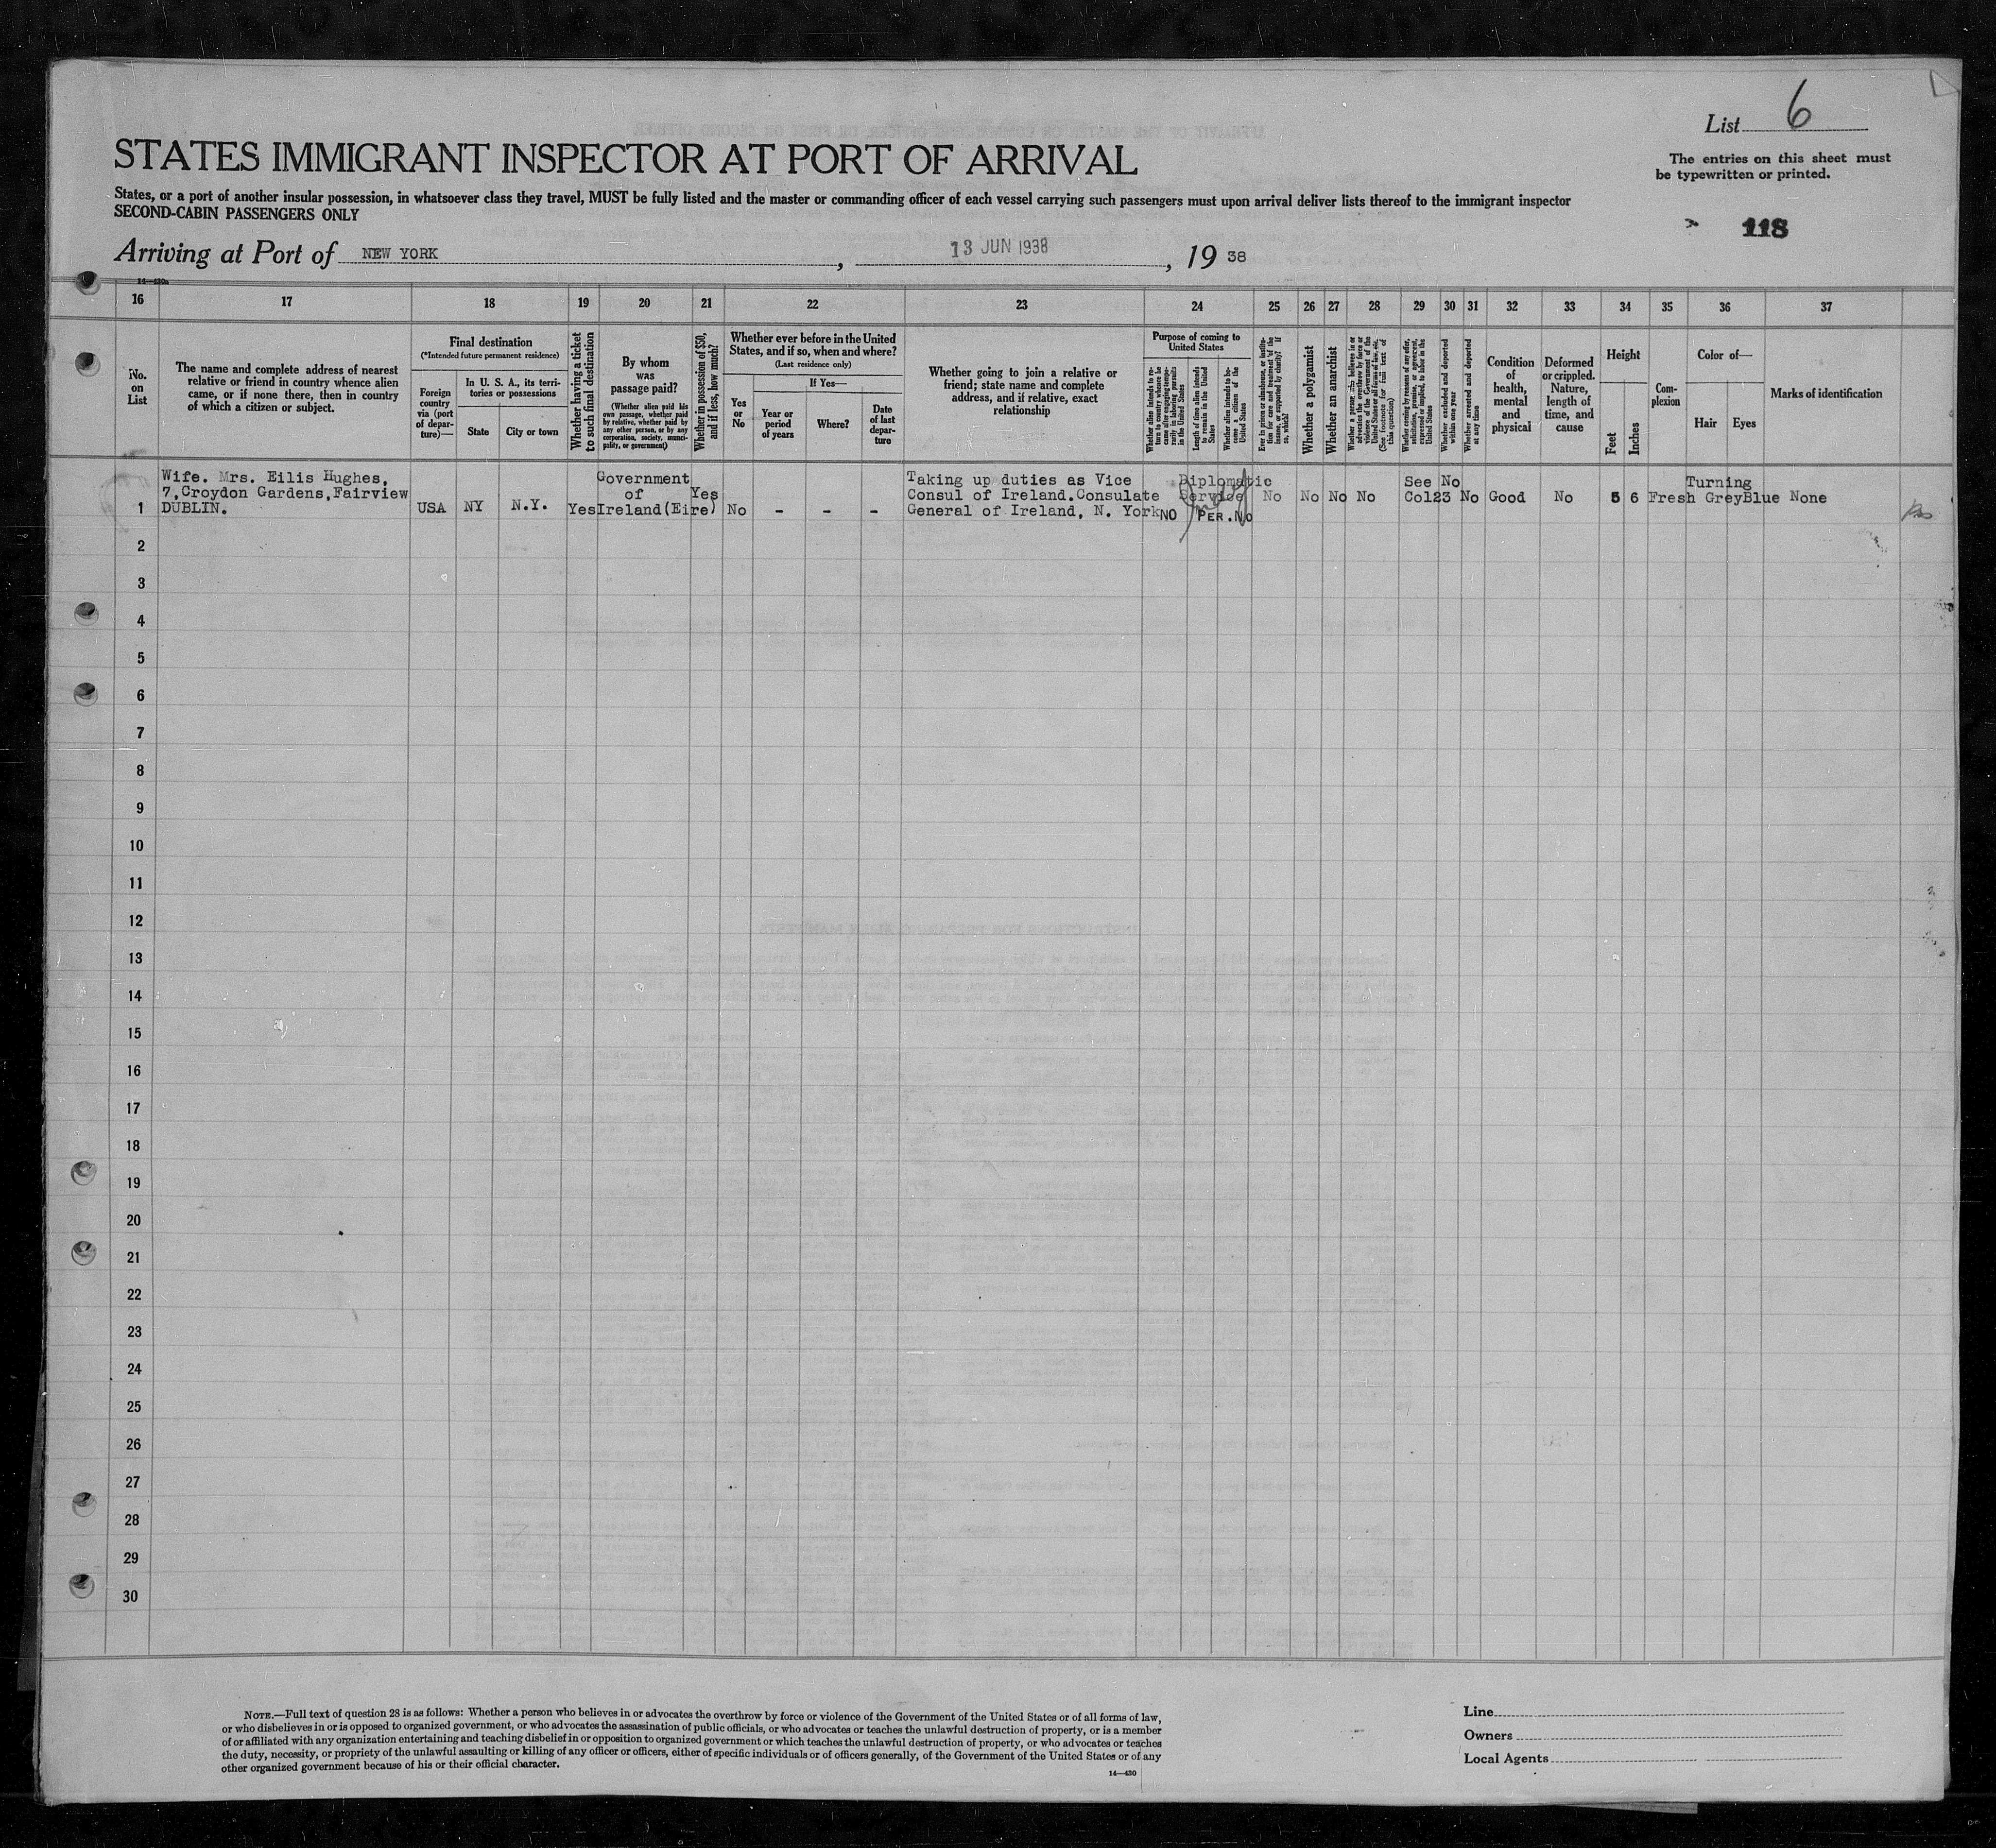 List 6
STATES IMMIGRANT INSPECTOR AT PORT OF ARRIVAL
The entries on this sheet must
be typewritten or printed.
States, or a port of another insular possession, in whatsoever class they travel, MUST be fully listed and the master or commanding officer of each vessel carrying such passengers must upon arrival deliver lists thereof to the immigrant inspector
SECOND-CABIN PASSENGERS ONLY
118
Arriving at Port of NEW YORK, 13 JUN 1938, 19 38
14—430a
16 17 18 19 20 21 22 23 24 25 26 27 28 29 30 31 32 33 34 35 36 37
No. on List
The name and complete address of nearest
relative or friend in country whence alien
came, or if none there, then in country
of which a citizen or subject.
Final destination
(*Intended future permanent residence)
Foreign country via (port of departure)—
In U. S. A., its territories or possessions
State
City or town
Whether having a ticket to such final destination
By whom was passage paid?
(Whether alien paid his own passage, whether paid by relative, whether paid by any other person, or by any corporation, society, municipality, or government)
Whether in possession of $50, and if less, how much?
Whether ever before in the United
States, and if so, when and where?
(Last residence only)
Yes or No
If Yes—
Year or period of years
Where?
Date of last departure
Whether going to join a relative or
friend; state name and complete
address, and if relative, exact
relationship
Purpose of coming to United States
Whether alien intends to return to country whence he came after engaging temporarily in laboring pursuits in the United States
Length of time alien intends to remain in the United States
Whether alien intends to become a citizen of the United States
Ever in prison or almshouse, or institution for care and treatment of the insane, or supported by charity? If so, which?
Whether a polygamist
Whether an anarchist
(See footnote for full text of this question)
Whether excluded and deported within one year
Whether arrested and deported at any time
Condition of health, mental and physical
Deformed or crippled. Nature, length of time, and cause
Height
Feet
Inches
Complexion
Color of—
Hair
Eyes
Marks of identification
1 Wife. Mrs. Eilis Hughes,
7,Croydon Gardens,Fairview
DUBLIN.
USA NY N.Y. Yes
Government
of
Ireland(Eire)
Yes
No - - -
Taking up duties as Vice
Consul of Ireland.Consulate
General of Ireland, N. York
Diplomatic
Service
NO PER. No
No No No No
See
Col23
No
No Good No 5 6 Fresh
Turning
Grey
Blue None
2
3
4
5
6
7
8
9
10
11
12
13
14
15
16
17
18
19
20
21
22
23
24
25
26
27
28
29
30
NOTE.—Full text of question 28 is as follows: Whether a person who believes in or advocates the overthrow by force or violence of the Government of the United States or of all forms of law,
or who disbelieves in or is opposed to organized government, or who advocates the assassination of public officials, or who advocates or teaches the unlawful destruction of property, or is a member
of or affiliated with any organization entertaining and teaching disbelief in or opposition to organized government or which teaches the unlawful destruction of property, or who advocates or teaches
the duty, necessity, or propriety of the unlawful assaulting or killing of any officer or officers, either of specific individuals or of officers generally, of the Government of the United States or of any
other organized government because of his or their official character.
14—430
Line
Owners
Local Agents